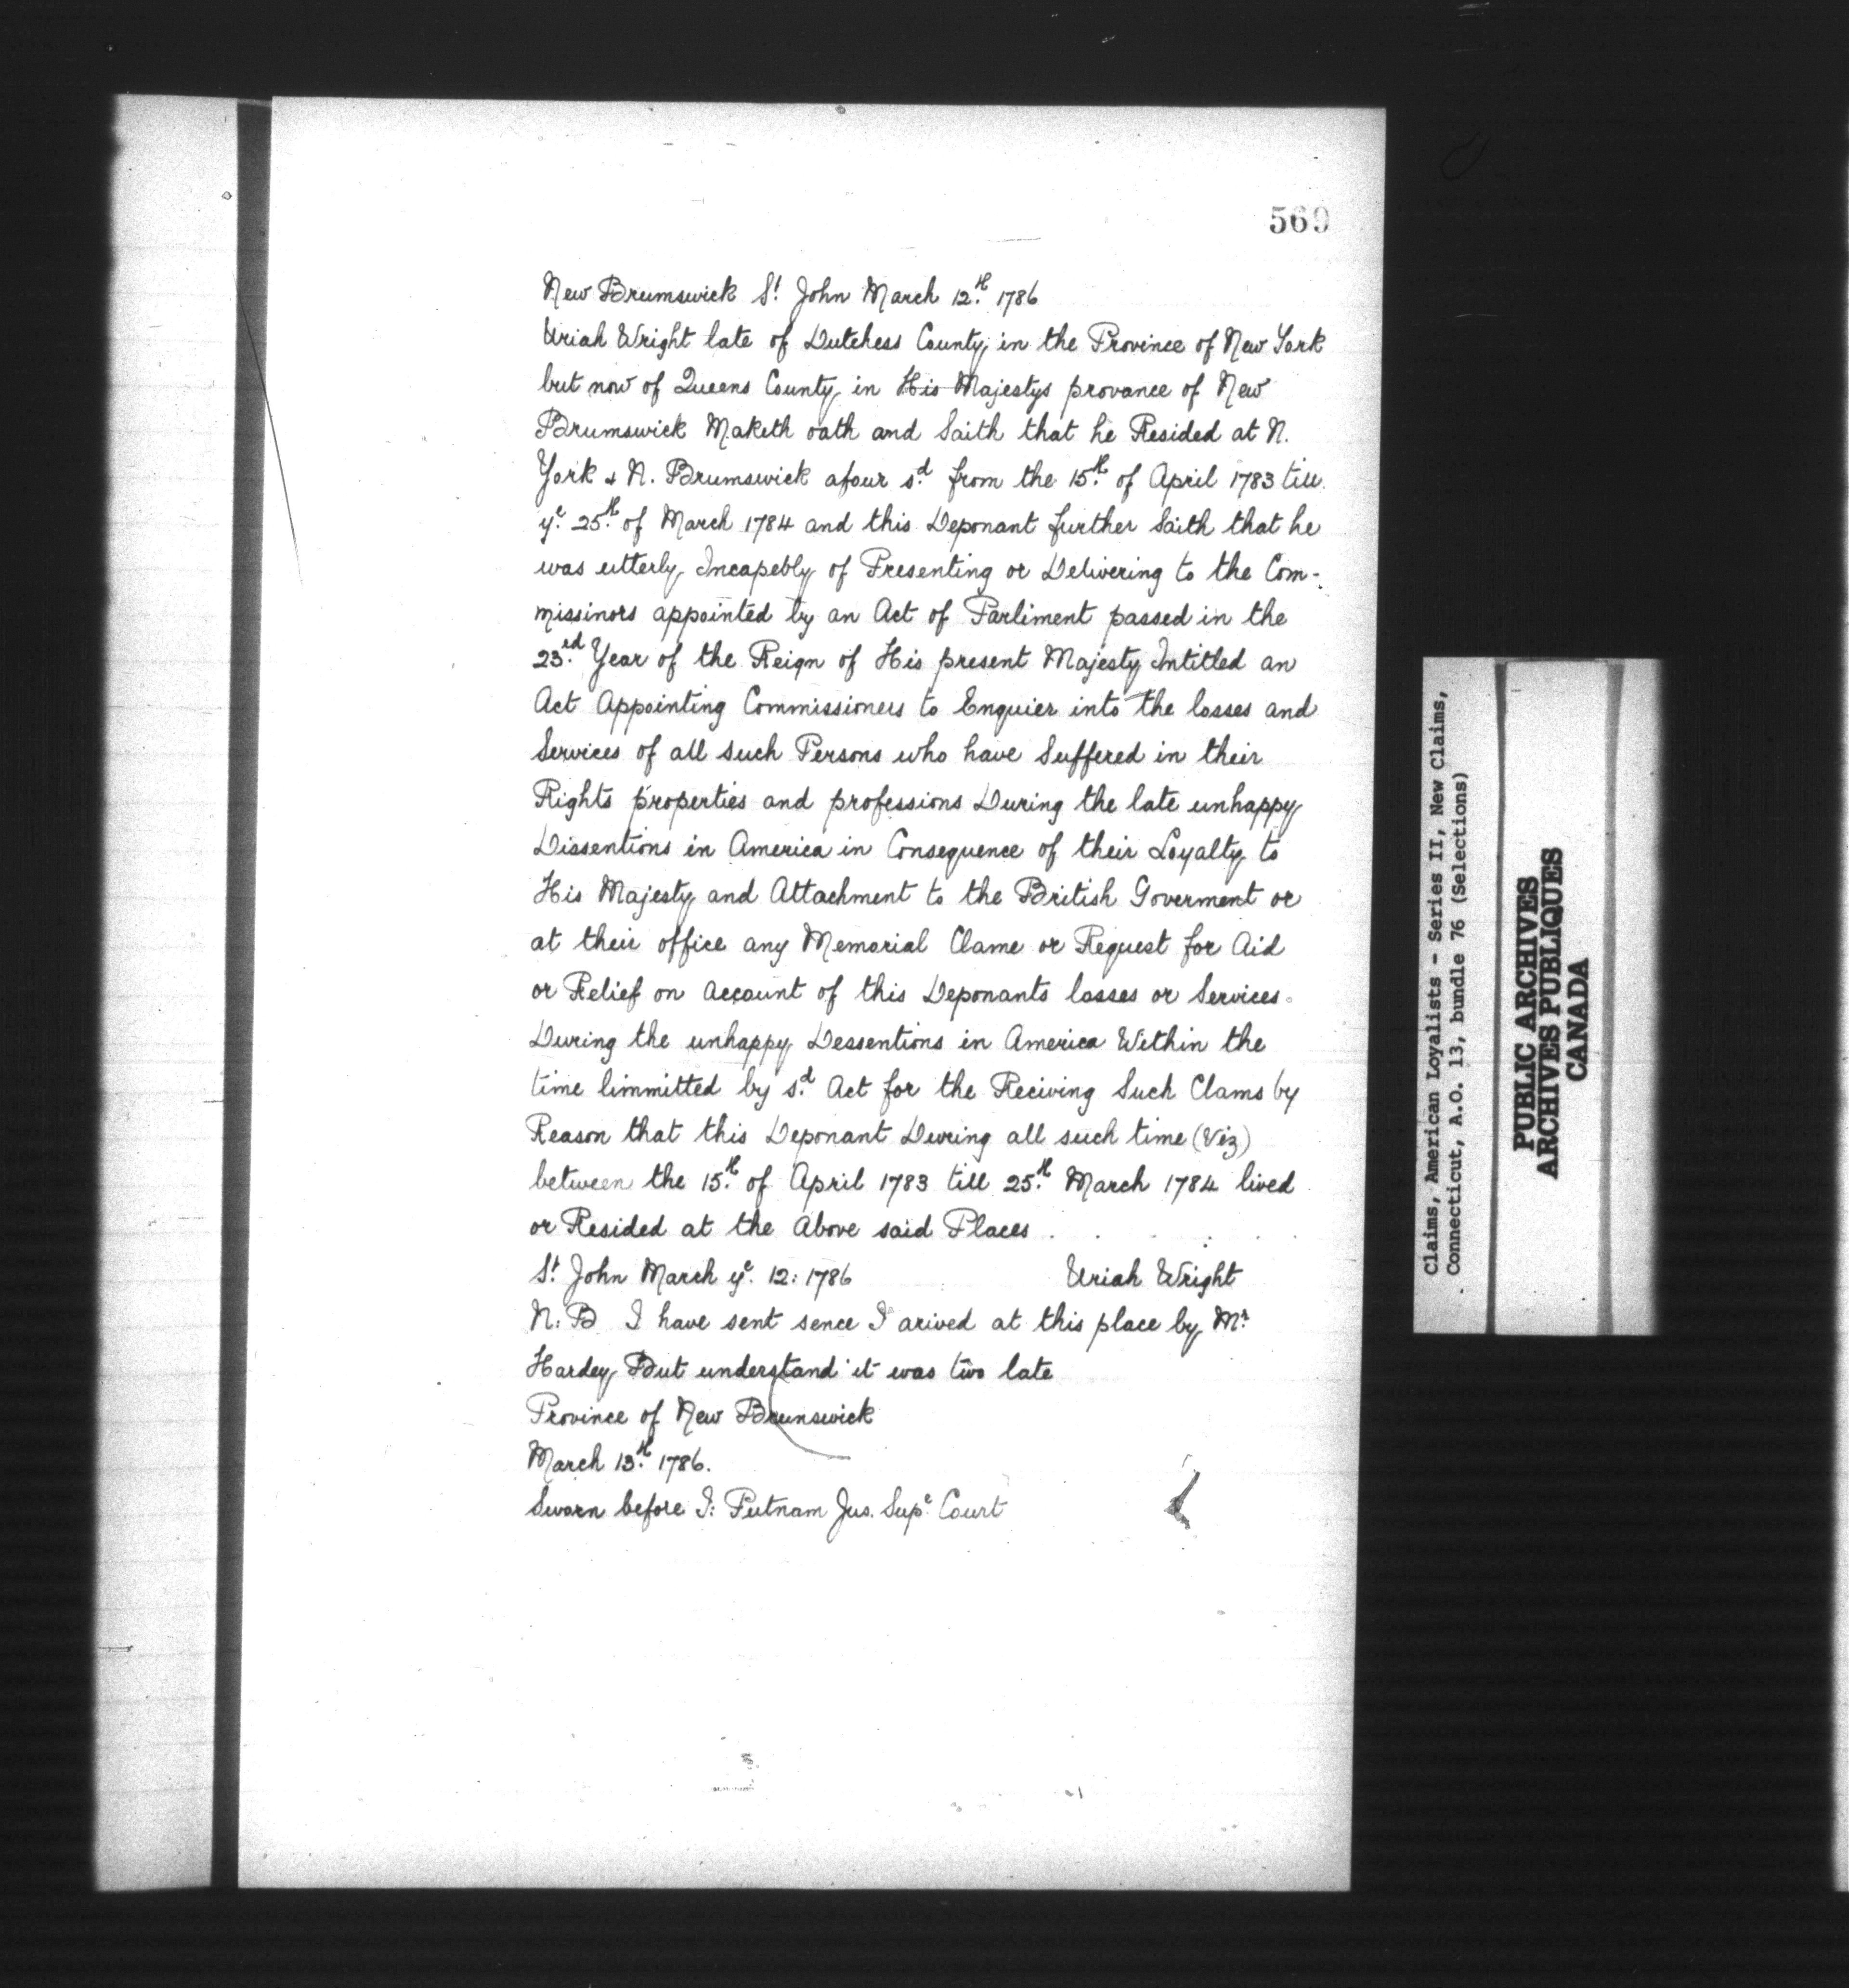 569
New Brumswick St John March 12.th 1786
Uriah Wright late of Dutchess County in the Province of New York
but now of Queens County in His Majestys provance of New
Brumswick Maketh oath and Saith that he Resided at N.
York & N. Brumswick afour sd. from the 15.th of April 1783 till
ye. 25.th of March 1784 and this Deponant further Saith that he
was utterly Incapebly of Presenting or Delivering to the Com-
missinors appointed by an Act of Parliment passed in the
23.ed Year of the Reign of His present Majesty Intitled an
Act Appointing Commissioners to Enquier into the losses and
Services of all such Persons who have Suffered in their
Rights properties and professions During the late unhappy
Dissentions in America in Consequence of their Loyalty to
His Majesty and Attachment to the British Goverment or
at their office any Memorial Clame or Request for Aid
or Relief on account of this Deponants losses or Services.
During the unhappy Dessentions in America Within the
time limmitted by sd. Act for the Reciving Such Clams by
Reason that this Deponant During all such time (Viz)
between the 15.th of April 1783 till 25.th March 1784 lived
or Resided at the Above said Places . . . . .
St John March ye. 12: 1786 Uriah Wright
N: B I have sent sence I arived at this place by Mr.
Hardey But understand it was two late
Province of New Brunswick
March 13.th 1786.
Sworn before I: Putnam Jus. Supe. Court
Claims, American Loyalists - Series II, New Claims,
Connecticut, A.O. 13, bundle 76 (Selections)
PUBLIC ARCHIVES
ARCHIVES PUBLIQUES
CANADA